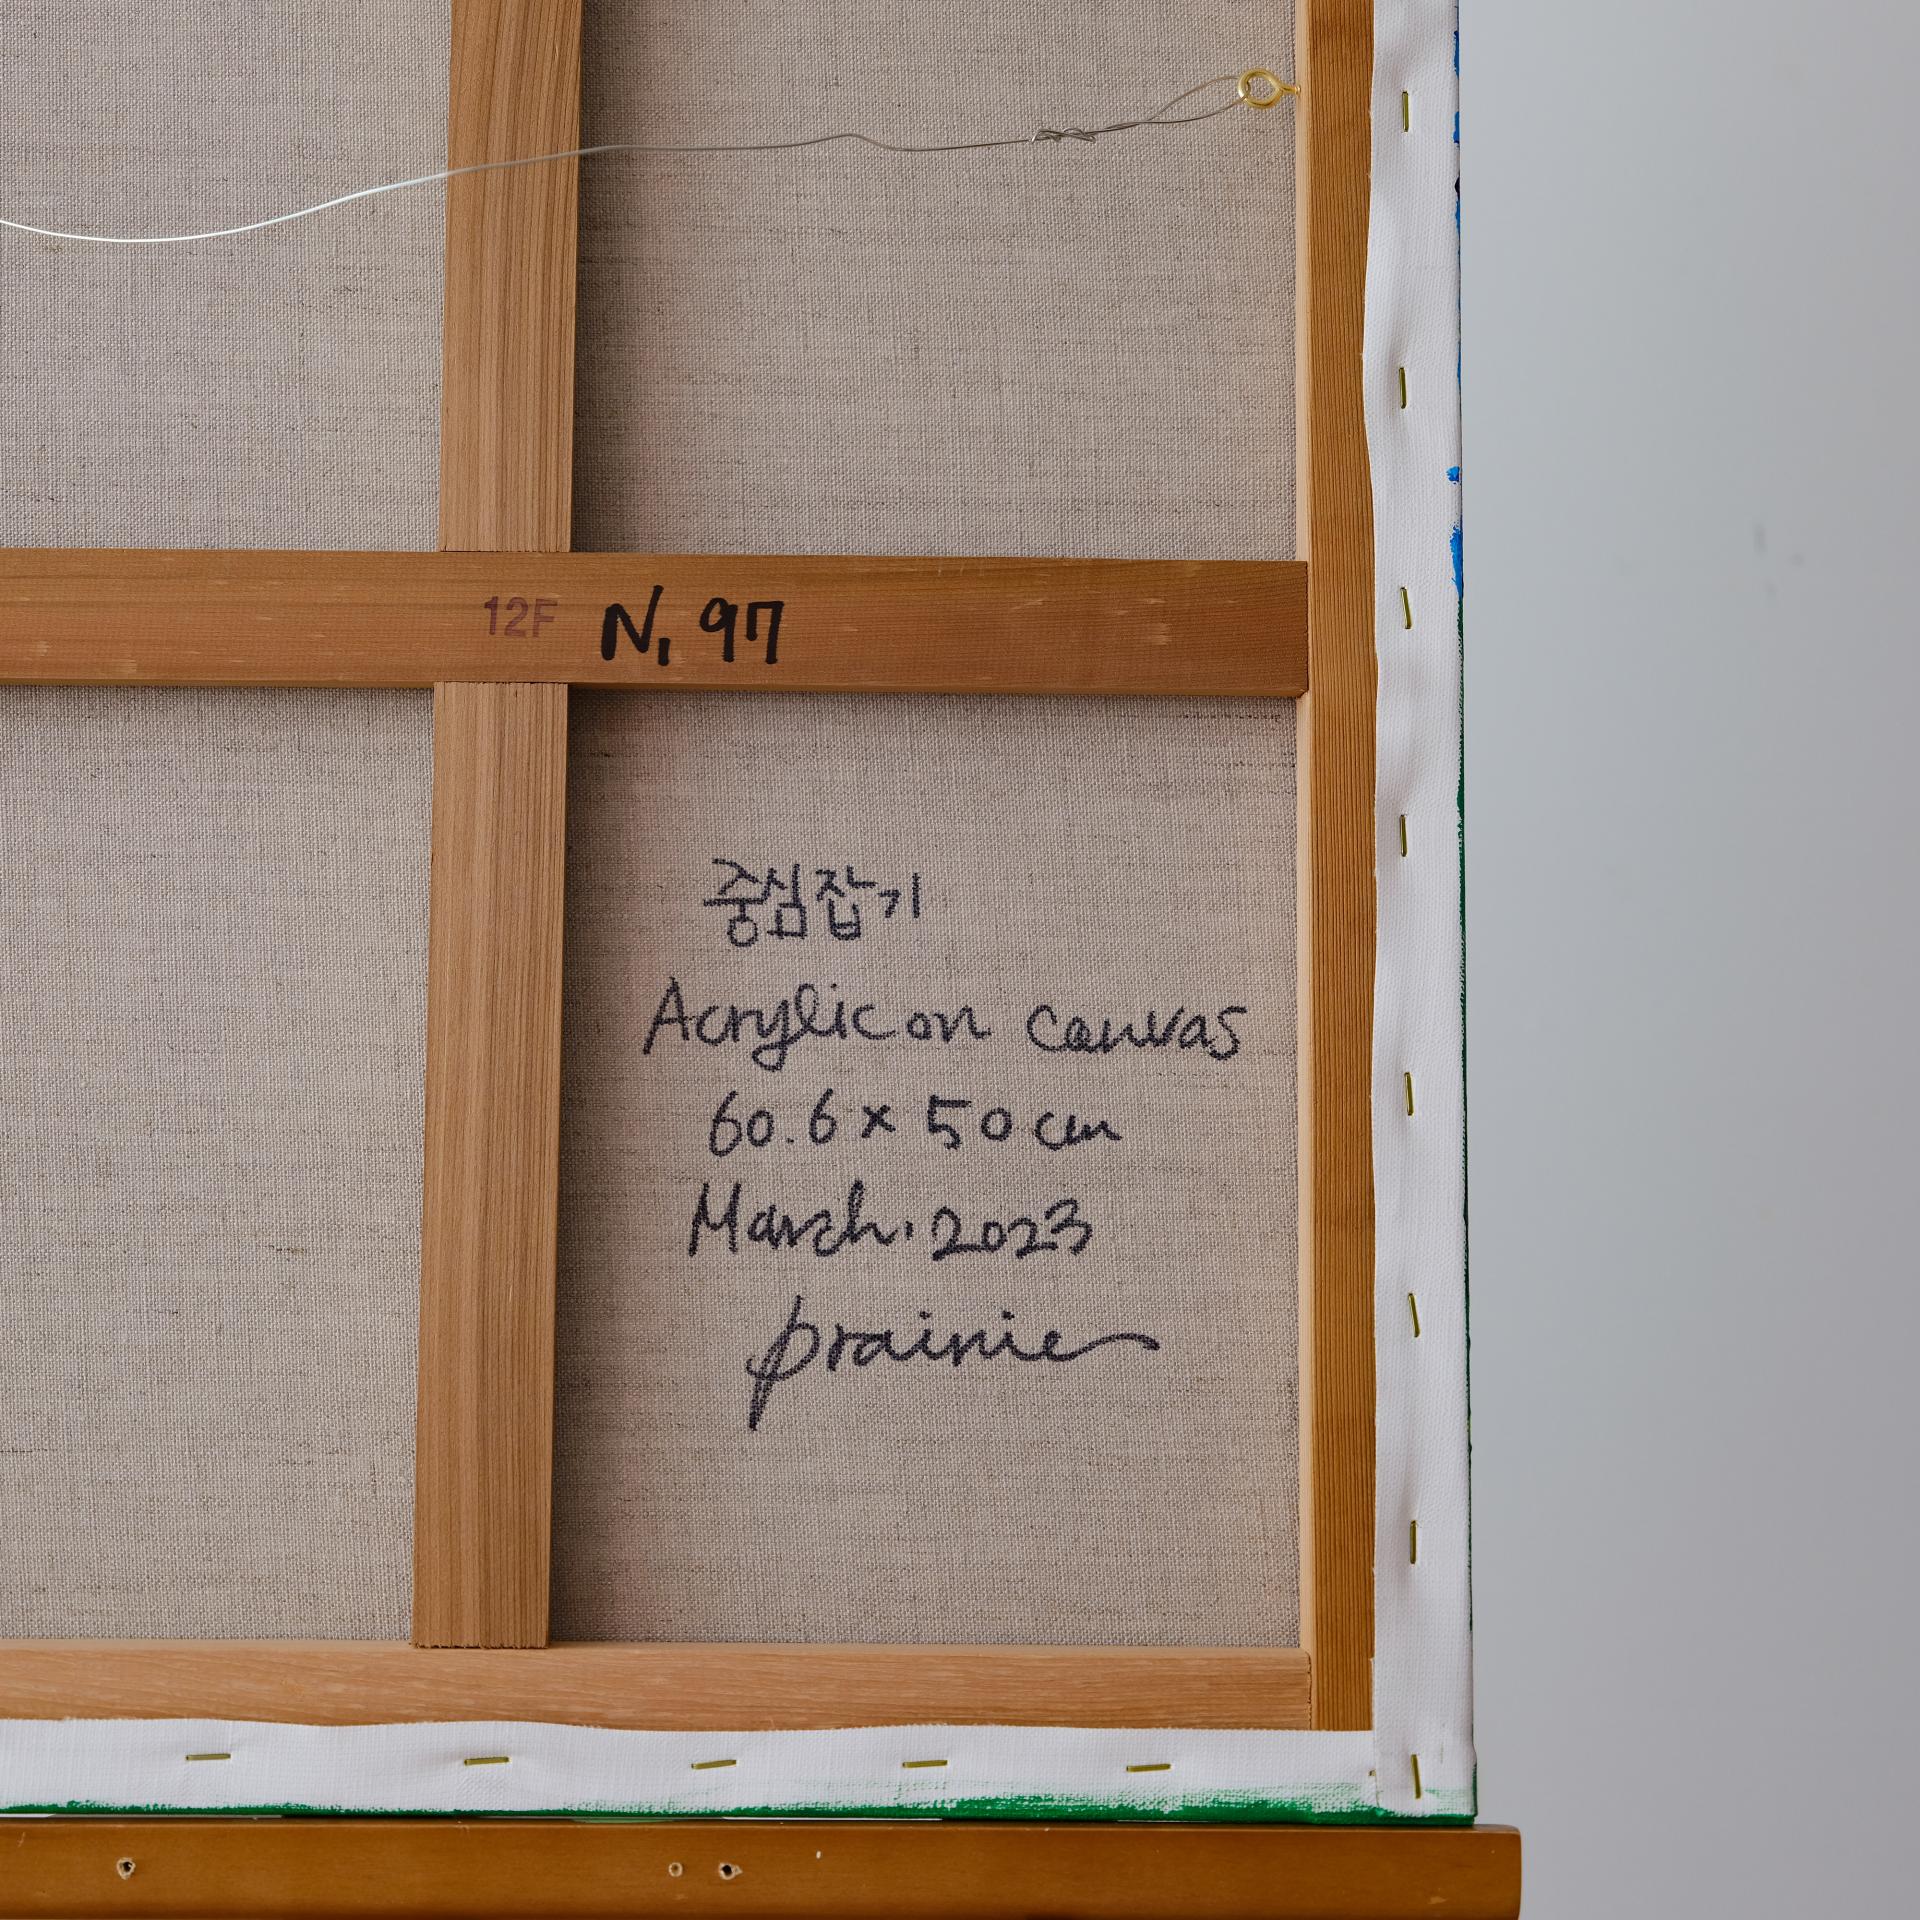 12F N, 97
중심잡기
Acrylic on canvas
60.6 x 50 cm
March. 2023
prairie